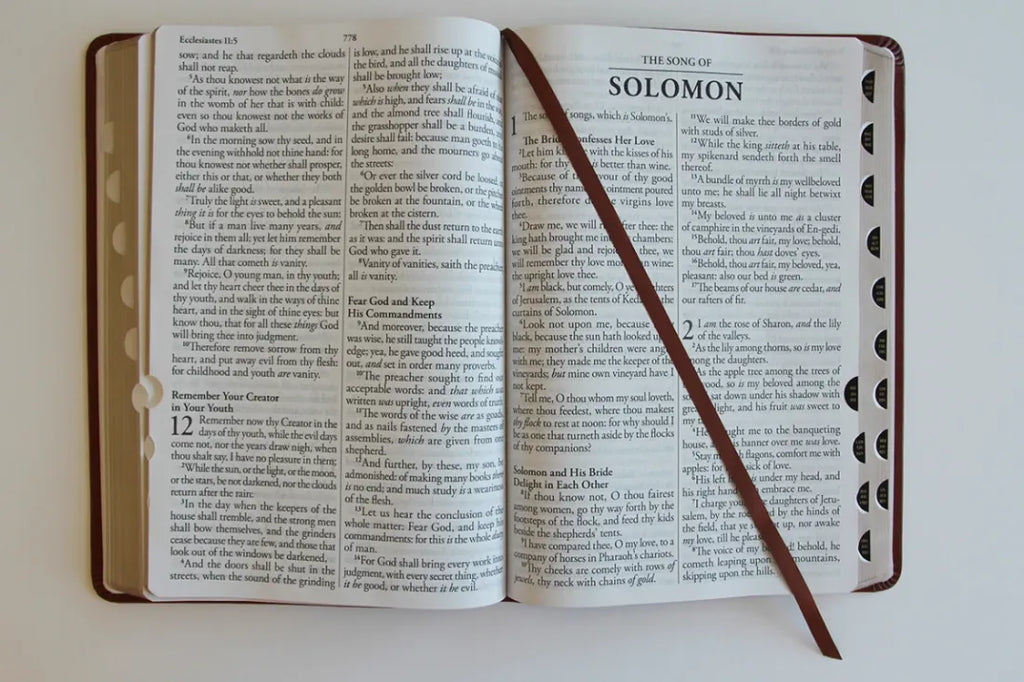 Ecclesiastes 11:5
778
sow; and he that regardeth the clouds
shall not reap.
5As thou knowest not what is the way
of the spirit, nor how the bones do grow
in the womb of her that is with child:
even so thou knowest not the works of
God who maketh all.
6In the morning sow thy seed, and in
the evening withhold not thine hand: for
thou knowest not whether shall prosper,
either this or that, or whether they both
shall be alike good.
7Truly the light is sweet, and a pleasant
thing it is for the eyes to behold the sun:
8But if a man live many years, and
rejoice in them all; yet let him remember
the days of darkness; for they shall be
many. All that cometh is vanity.
9Rejoice, O young man, in thy youth;
and let thy heart cheer thee in the days of
thy youth, and walk in the ways of thine
heart, and in the sight of thine eyes: but
know thou, that for all these things God
will bring thee into judgment.
10Therefore remove sorrow from thy
heart, and put away evil from thy flesh:
for childhood and youth are vanity.
Remember Your Creator
in Your Youth
12 Remember now thy Creator in the
days of thy youth, while the evil days
come not, nor the years draw nigh, when
thou shalt say, I have no pleasure in them;
2While the sun, or the light, or the moon,
or the stars, be not darkened, nor the clouds
return after the rain:
3In the day when the keepers of the
house shall tremble, and the strong men
shall bow themselves, and the grinders
cease because they are few, and those that
look out of the windows be darkened,
4And the doors shall be shut in the
streets, when the sound of the grinding
is low, and he shall rise up at the
the bird, and all the daughters of
shall be brought low;
5Also when they shall be afraid of
which is high, and fears shall be in the
and the almond tree shall flourish, and
the grasshopper shall be a burden, and
desire shall fail: because man goeth to
long home, and the mourners go about
the streets:
6Or ever the silver cord be loosed, or
the golden bowl be broken, or the
be broken at the fountain, or the
broken at the cistern.
7Then shall the dust return to the
as it was: and the spirit shall return unto
God who gave it.
8Vanity of vanities, saith the preacher;
all is vanity.
Fear God and Keep
His Commandments
9And moreover, because the preacher
was wise, he still taught the people
edge; yea, he gave good heed, and sought
out, and set in order many proverbs.
10The preacher sought to find out
acceptable words: and that which was
written was upright, even words of truth.
11The words of the wise are as goads,
and as nails fastened by the masters of
assemblies, which are given from one
shepherd.
12And further, by these, my son, be
admonished: of making many books there
is no end; and much study is a weariness
of the flesh.
13Let us hear the conclusion of the
whole matter: Fear God, and keep his
commandments: for this is the whole duty
of man.
14For God shall bring every work into
judgment, with every secret thing, whether
it be good, or whether it be evil.
THE SONG OF
SOLOMON
1 The song of songs, which is Solomon's.
The Bride Confesses Her Love
2Let him kiss with the kisses of his
mouth: for thy is better than wine.
3Because of the savour of thy good
ointments thy name ointment poured
forth, therefore do virgins love
thee.
4Draw me, we will after thee: the
king hath brought me into chambers:
we will be glad and rejoice thee, we
will remember thy love more wine:
the upright love thee.
5I am black, but comely, O ye daughters
of Jerusalem, as the tents of Kedar, the
curtains of Solomon.
6Look not upon me, because
black, because the sun hath looked
me: my mother's children were angry
with me; they made me the keeper of the
vineyards; but mine own vineyard have I
not kept.
7Tell me, O thou whom my soul loveth,
where thou feedest, where thou makest
thy flock to rest at noon: for why should I
be as one that turneth aside by the flocks
of thy companions?
Solomon and His Bride
Delight in Each Other
8If thou know not, O thou fairest
among women, go thy way forth by the
footsteps of the flock, and feed thy kids
beside the shepherds' tents.
9I have compared thee, O my love, to a
company of horses in Pharaoh's chariots.
10Thy cheeks are comely with rows of
jewels, thy neck with chains of gold.
11We will make thee borders of gold
with studs of silver.
12While the king sitteth at his table,
my spikenard sendeth forth the smell
thereof.
13A bundle of myrrh is my wellbeloved
unto me; he shall lie all night betwixt
my breasts.
14My beloved is unto me as a cluster
of camphire in the vineyards of En-gedi.
15Behold, thou art fair, my love; behold,
thou art fair; thou hast doves' eyes.
16Behold, thou art fair, my beloved, yea,
pleasant: also our bed is green.
17The beams of our house are cedar, and
our rafters of fir.
2 I am the rose of Sharon, and the lily
of the valleys.
2As the lily among thorns, so is my love
among the daughters.
As the apple tree among the trees of
wood, so is my beloved among the
sat down under his shadow with
great delight, and his fruit was sweet to
my
4He brought me to the banqueting
house, and his banner over me was love.
5Stay with flagons, comfort me with
apples: for sick of love.
6His left is under my head, and
his right embrace me.
7I charge you, daughters of Jeru-
salem, by the and by the hinds of
the field, that ye up, nor awake
my love, till he please.
8The voice of my beloved! behold, he
cometh leaping upon mountains,
skipping upon the hills.